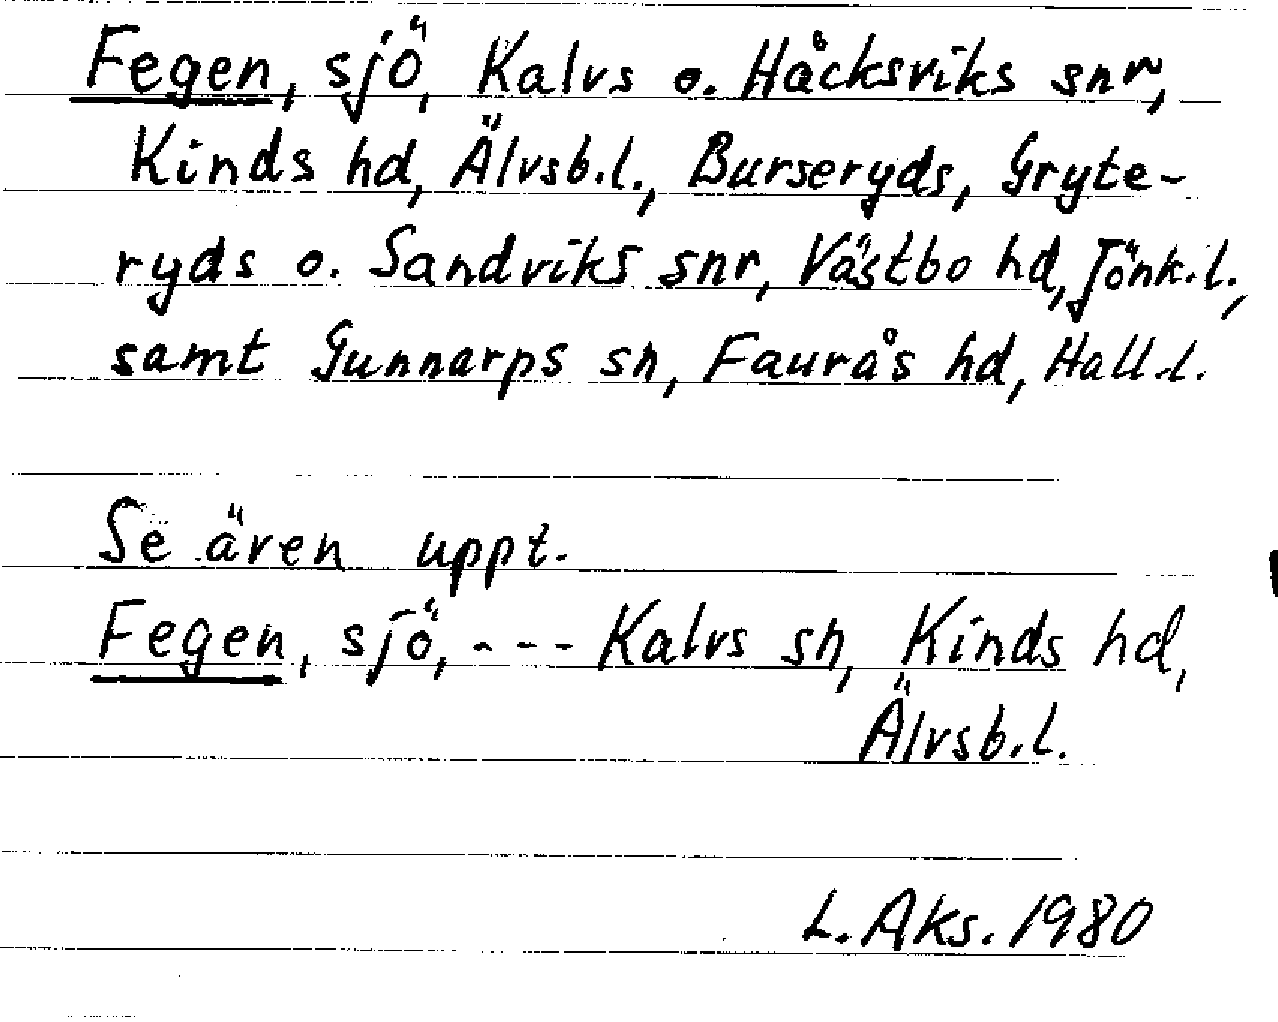 Fegen, sjö, Kalvs o. Håcksviks snr,
Kinds hd, Älvsb.l., Burseryds, Gryte-
ryds o. Sandviks snr, Västbo hd, Jönk.l.,
samt Gunnarps sn, Faurås hd, Hall.l.
Se även uppt.
Fegen, sjö, --- Kalvs sn, Kinds hd,
Älvsb.l.
L. Aks. 1980